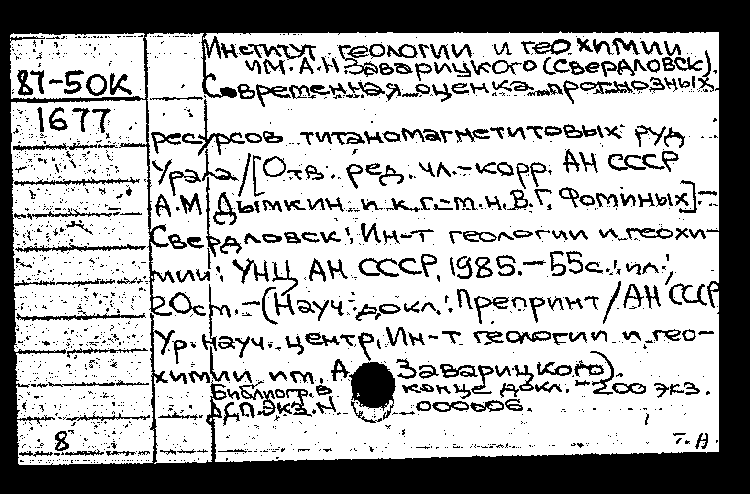 Институт геологии и геохимии
им. А.Н. Заварицкого (Свердловск).
87-50К
Современная оценка прогнозных
1677
ресурсов титаномагнетитовых руд
Урала/[Отв. ред. чл.-корр. АН СССР
А.М. Дымкин и к.г.-м.н. В.Г. Фоминых].-
Свердловск: Ин-т геологии и геохи-
мии: УНЦ АН СССР, 1985.-55с.: ил.;
20см.-(Науч. докл.: Препринт/АН СССР
Ур. науч. центр, Ин-т геологии и гео-
химии им. А. Заварицкого).
Библиогр. в конце докл.-200 экз.
ДСП. Экз. N 000606.
8
Т. А.